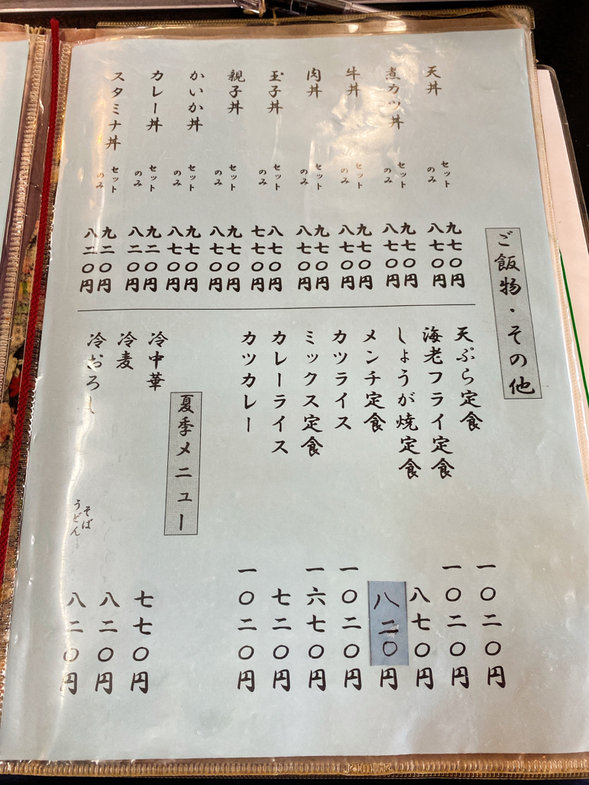 ご飯物・その他
天丼 セット 九七〇円
のみ 八七〇円
煮カツ丼 セット 九七〇円
のみ 八七〇円
牛丼 セット 九七〇円
のみ 八七〇円
肉丼 セット 九七〇円
のみ 八七〇円
玉子丼 セット 八七〇円
のみ 七七〇円
親子丼 セット 九七〇円
のみ 八七〇円
かいか丼 セット 九七〇円
のみ 八七〇円
カレー丼 セット 九二〇円
のみ 八二〇円
スタミナ丼 セット 九二〇円
のみ 八二〇円
天ぷら定食 一〇二〇円
海老フライ定食 一〇二〇円
しょうが焼定食 八七〇円
メンチ定食 八二〇円
カツライス 一〇二〇円
ミックス定食 一六七〇円
カレーライス 七二〇円
カツカレー 一〇二〇円
夏季メニュー
冷中華 七七〇円
冷麦 八二〇円
冷おろし そば うどん 八二〇円